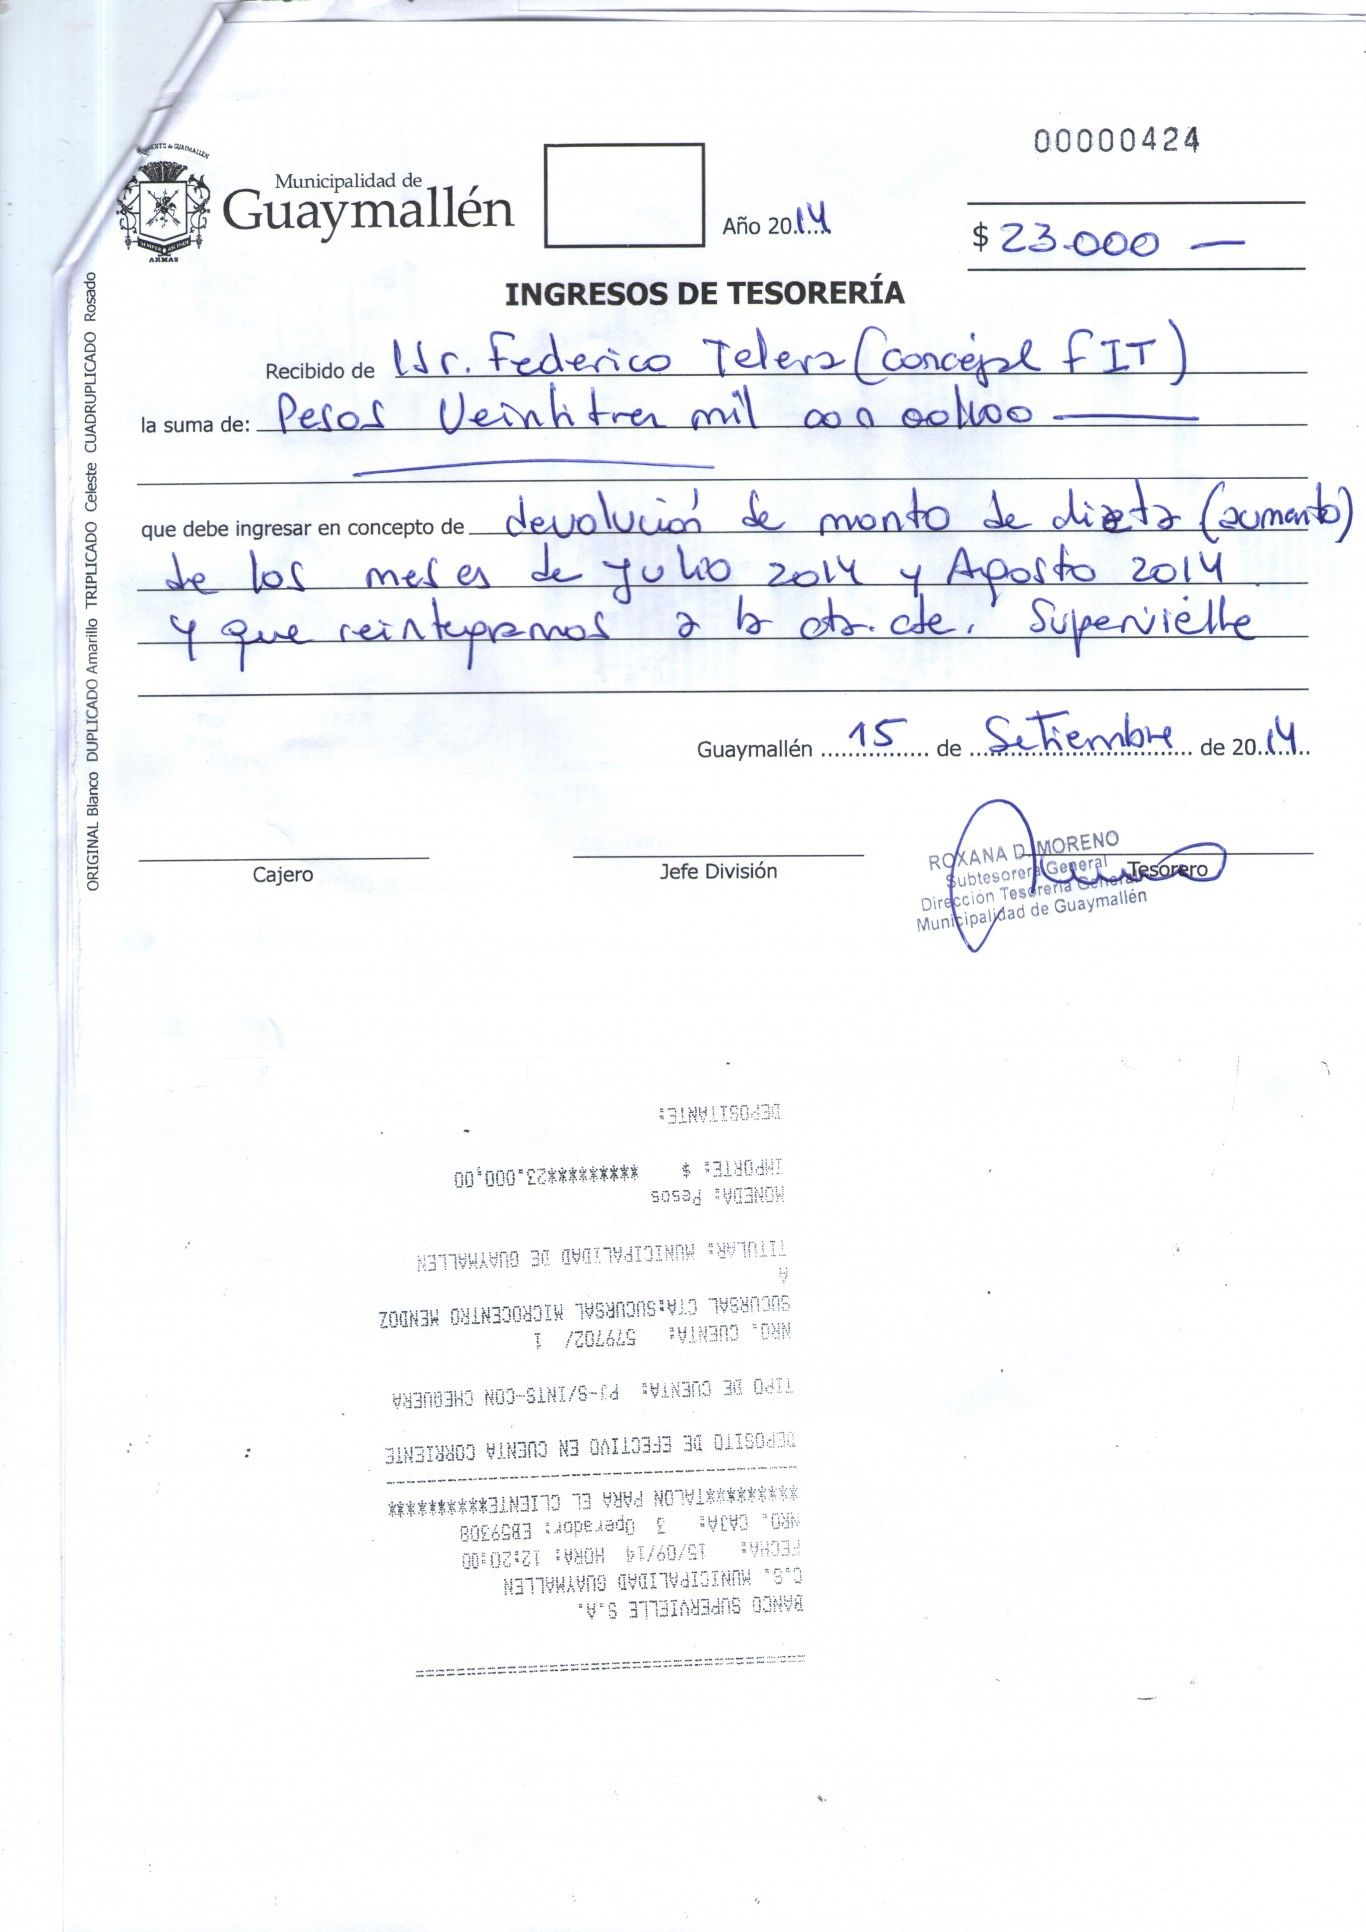 00000424
DEPARTAMENTO de GUAYMALLÉN
SEMPER ASCENDE
ARMAS
Municipalidad de
Guaymallén
Año 2014
$ 23.000 —
INGRESOS DE TESORERÍA
Recibido de Sr. Federico Telera (concejal FIT)
la suma de: Pesos Veintitres mil con 00/100
que debe ingresar en concepto de devolución de monto de dieta (aumento)
de los meses de Julio 2014 y Agosto 2014
y que reintegramos a la cta. cte. Supervielle
Guaymallén 15 de Setiembre de 2014
ROXANA D. MORENO
Subtesorera General
Dirección Tesorería General
Municipalidad de Guaymallén
Cajero
Jefe División
Tesorero
ORIGINAL Blanco DUPLICADO Amarillo TRIPLICADO Celeste CUADRUPLICADO Rosado
========================================
BANCO SUPERVIELLE S.A.
C.S. MUNICIPALIDAD GUAYMALLEN
FECHA: 15/09/14 HORA: 12:20:00
NRO. CAJA: 3 Operador: EB59308
*********TALON PARA EL CLIENTE**********
----------------------------------------
DEPOSITO DE EFECTIVO EN CUENTA CORRIENTE
TIPO DE CUENTA: PJ-S/INTS-CON CHEQUERA
NRO. CUENTA: 579702/ 1
SUCURSAL CTA:SUCURSAL MICROCENTRO MENDOZ
A
TITULAR: MUNICIPALIDAD DE GUAYMALLEN
MONEDA: Pesos
IMPORTE: $ *********23.000,00
DEPOSITANTE: